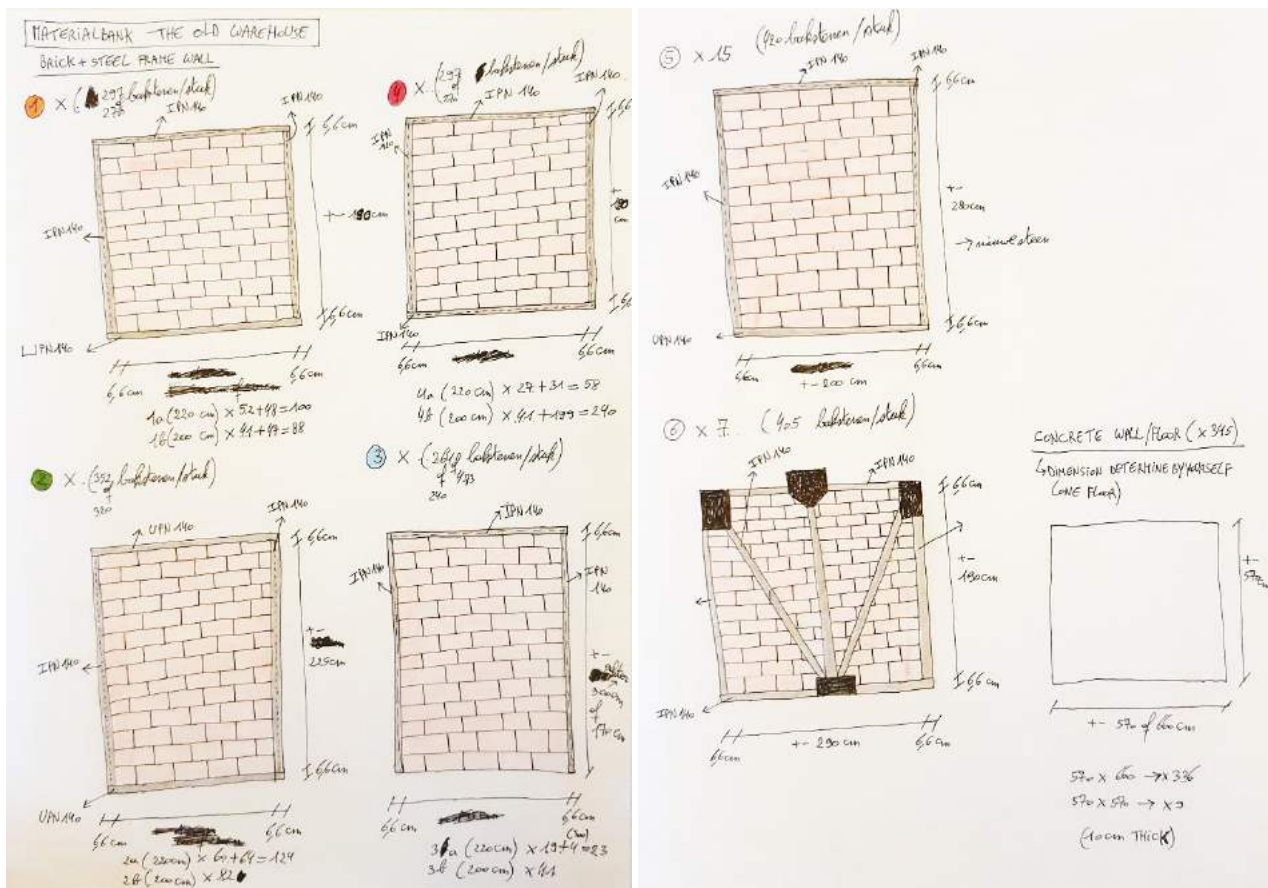 MATERIALBANK - THE OLD WAREHOUSE
BRICK + STEEL FRAME WALL
1 × ( 297 bakstenen/stuk)
of
270
IPN 140
IPN 140
6,6cm
IPN 140
+- 190cm
6,6cm
UPN 140
6,6 cm
6,6cm
1a (220 cm) × 52+48=100
1b (200 cm) × 41+47=88
4 × ( 297 bakstenen/stuk)
of
270
IPN 140
IPN 140
6,6
IPN
140
+-
190
cm
6,6
IPN 140
6,6cm
6,6cm
4a (220 cm) × 27+31=58
4b (200 cm) × 41+199=240
2 × (352 bakstenen/stuk)
of
320
UPN 140
IPN 140
6,6cm
IPN 140
+-
225cm
6,6cm
UPN 140
6,6cm
6,6cm
2a (220cm) × 60+64=124
2b (200cm) × 82
3 × ( bakstenen/stuk)
of
240
IPN 140
6,6cm
IPN 140
IPN
140
+-
300cm
of
170 cm
6,6cm
6,6cm
3a (220cm) × 19+4=23
3b (200cm) × 41
5 × 15 (420 bakstenen/stuk)
IPN 140
IPN 140
6,6cm
IPN 140
+-
280cm
→ nieuwe steen
6,6cm
UPN 140
6,6cm
6,6cm
+- 200 cm
6 × 7 (405 bakstenen/stuk)
IPN 140
IPN 140
6,6cm
+-
190cm
6,6cm
IPN 140
6,6cm
+- 290cm
6,6cm
CONCRETE WALL/FLOOR (×345)
↳ DIMENSION DETERMINE BY YOURSELF
(ONE FLOOR)
+-
570cm
+- 570 of 600cm
570 × 600 → × 336
570 × 570 → × 9
(10cm THICK)